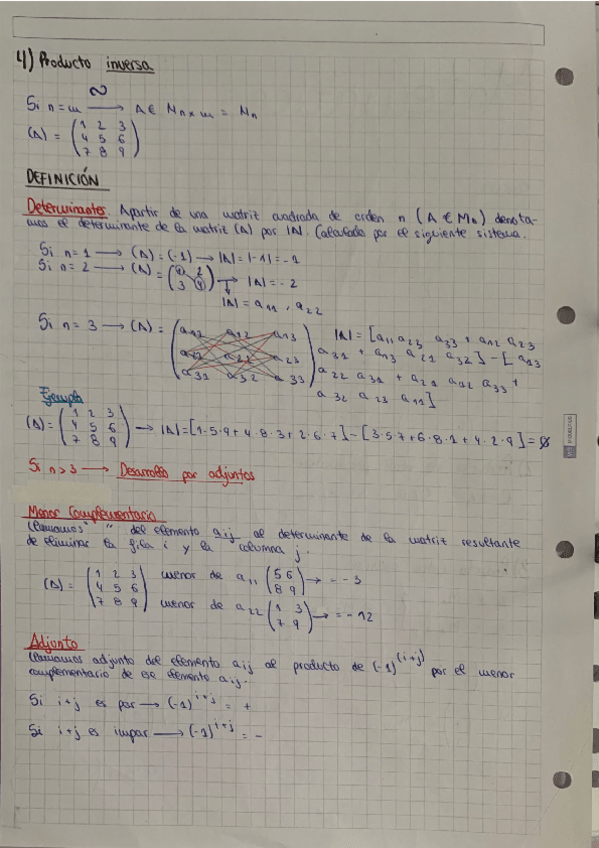 4) Producto inversa
Si n=m → A ∈ Mn×m = Mn
(A) = (1 2 3
4 5 6
7 8 9)
DEFINICIÓN
Determinantes. Apartir de una matriz cuadrada de orden n (A ∈ Mn) denota-
mos el determinante de la matriz (A) por |A|. Calculado por el siguiente sistema.
Si n=1 → (A) = (-1) → |A| = |-1| = -1
Si n=2 → (A) = (1 2
3 4) → |A| = -2
|A| = a11 . a22
Si n=3 → (A) = (a11 a12 a13
a21 a22 a23
a31 a32 a33)
|A| = [a11 a22 a33 + a12 a23
a31 + a13 a21 a32] - [a13
a22 a31 + a21 a12 a33 +
a32 a23 a11]
Ejemplo
(A) = (1 2 3
4 5 6
7 8 9) → |A| = [1·5·9+4·8·3+2·6·7] - [3·5·7+6·8·1+4·2·9] = 0
Si n>3 → Desarrollo por adjuntos
Menor Complementario
Llamamos " " del elemento aij al determinante de la matriz resultante
de eliminar la fila i y la columna j.
(A) = (1 2 3
4 5 6
7 8 9)
menor de a11 (5 6
8 9) → = -3
menor de a22 (1 3
7 9) → = -12
Adjunto
Llamamos adjunto del elemento aij al producto de (-1)^(i+j) por el menor
complementario de ese elemento aij.
Si i+j es par → (-1)^i+j = +
Si i+j es impar → (-1)^i+j = -